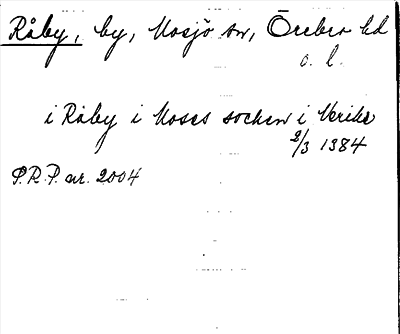 Råby, by, Mosjö sn, Örebro hd
o. l.
i Råby i Moses socken i Nerike
2/3 1384
S.R.P. nr. 2004